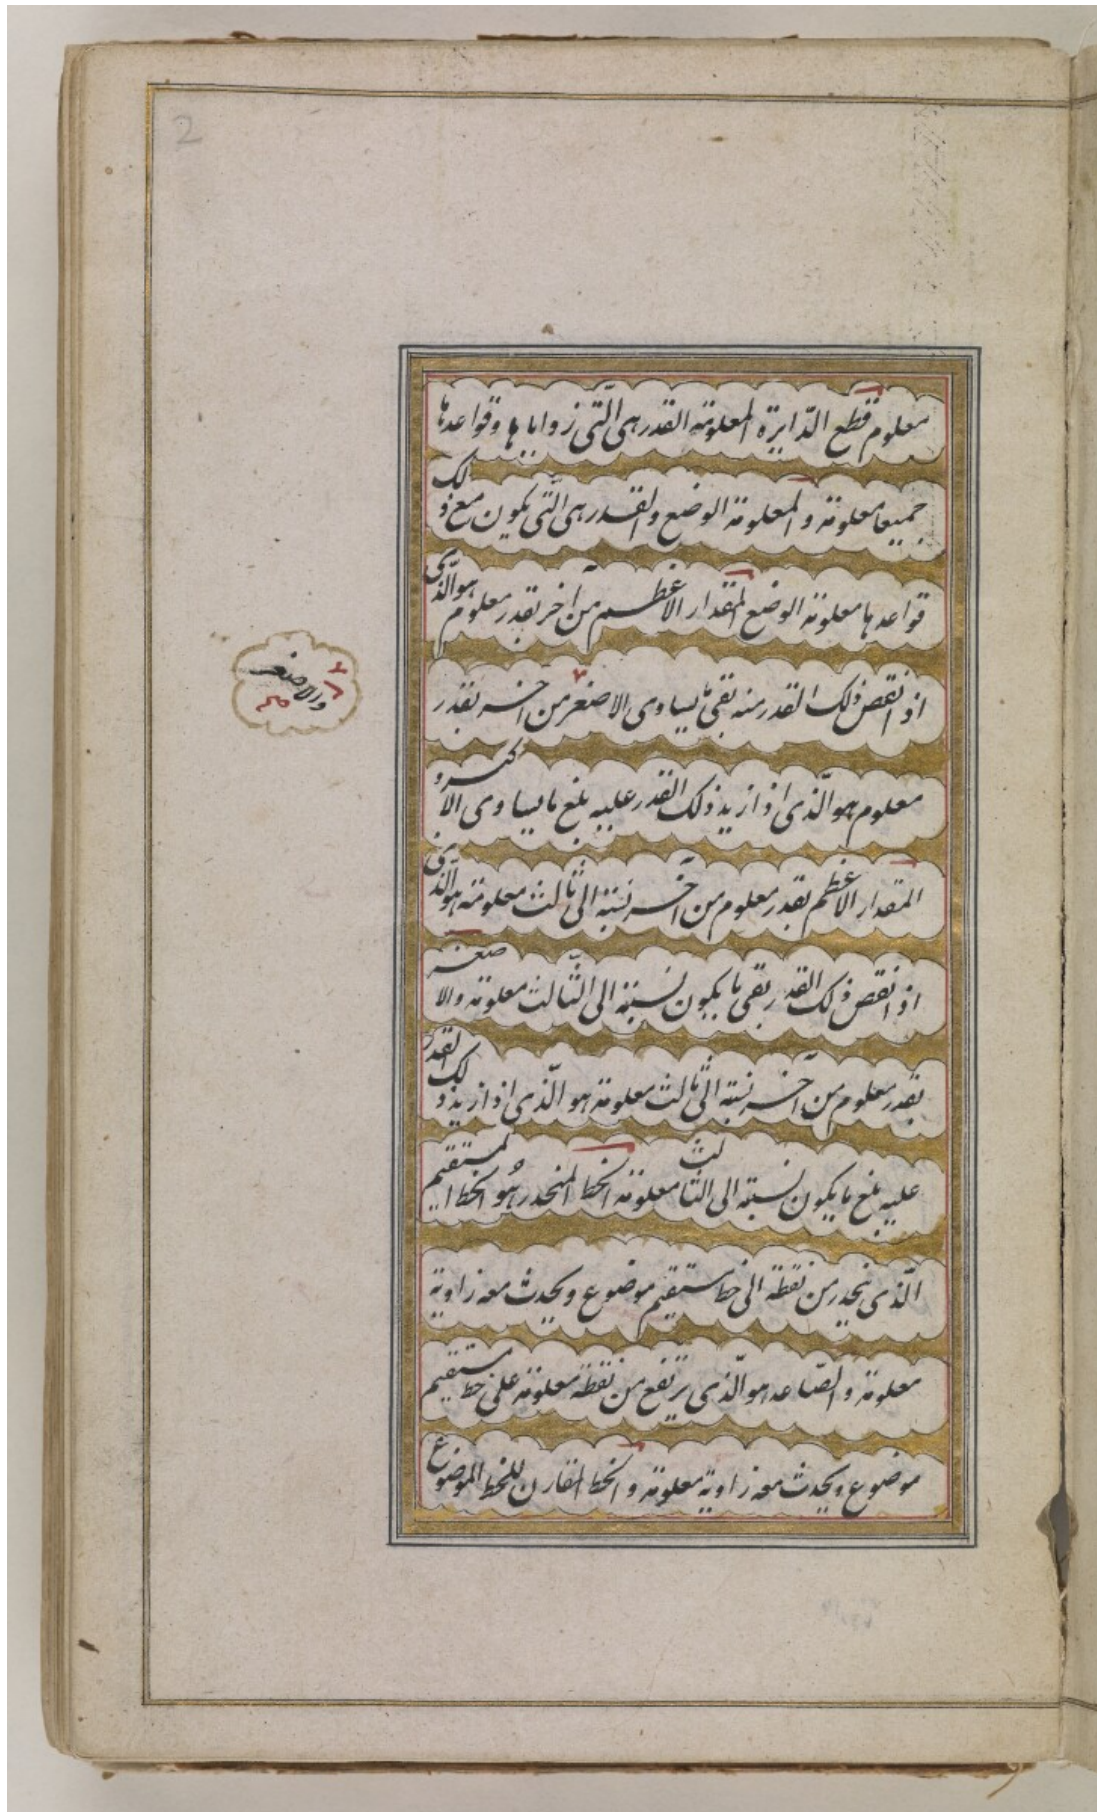 2
معلوم قطع الدّايرة المعلومة القدر هى الّتى زواياها وقواعدها
جميعا معلومة والمعلومة الوضع والقدر هى الّتى يكون مع ذلك
قواعدها معلومة الوضع المقدار الاعظم من آخر بقدر معلوم هو الّذى
اذا نقص ذلك القدر منه بقى ما يساوى الاصغر من آخر بقدر
معلوم هو الّذى اذا زيد ذلك القدر عليه بلغ ما يساوى الاكبر و
المقدار الاعظم بقدر معلوم من آخر نسبته الى ثالث معلومة هو الّذى
اذا نقص ذلك القدر بقى ما يكون نسبته الى الثّالث معلومة والاصغر
بقدر معلوم من آخر نسبته الى ثالث معلومة هو الّذى اذا زيد ذلك القدر
عليه بلغ ما يكون نسبته الى الثالث معلومة الخط المنحدر هُو الخط المستقيم
الّذى ينحدر من نقطة الى خط مستقيم موضوع ويحدث معه زاوية
معلومة والصّاعد هو الّذى يرتفع من نقطة معلومة على خط مستقيم
موضوع ويحدث معه زاوية معلومة والخط المقارن للخط الموضوع
والاصغر
صح